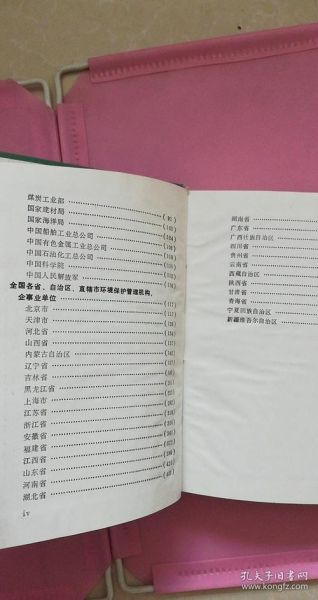 煤炭工业部
国家建材局
国家海洋局
中国船舶工业总公司
中国有色金属工业总公司
中国石油化工总公司
中国科学院
中国人民解放军
全国各省、自治区、直辖市环境保护管理机构、
企事业单位
北京市
天津市
河北省
山西省
内蒙古自治区
辽宁省
吉林省
黑龙江省
上海市
江苏省
浙江省
安徽省
福建省
江西省
山东省
河南省
湖北省
iv
湖南省
广东省
广西壮族自治区
四川省
贵州省
云南省
西藏自治区
陕西省
甘肃省
青海省
宁夏回族自治区
新疆维吾尔自治区
孔夫子旧书网
www.kongfz.com